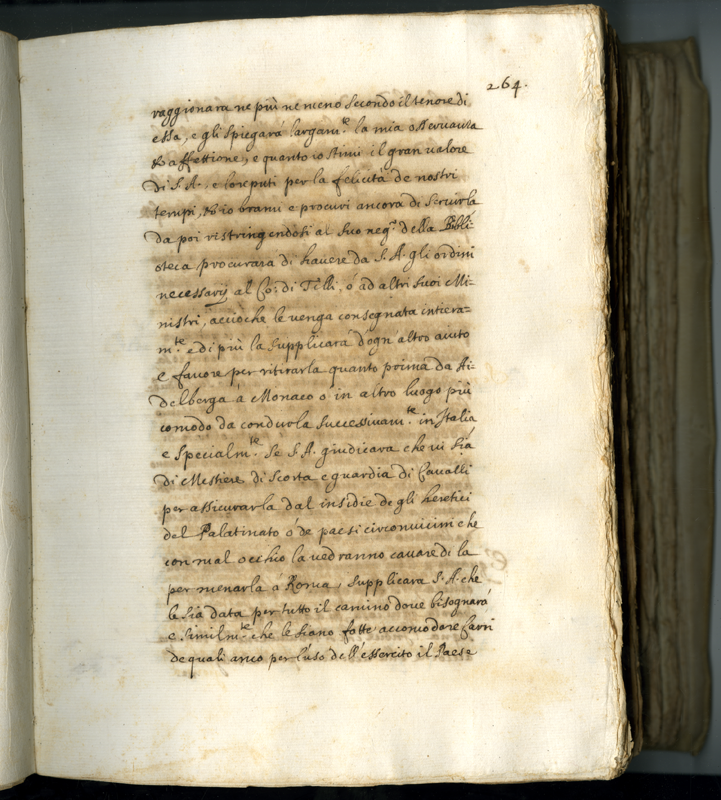 264.
raggionara ne più ne meno secondo il tenore di
essa, e gli spiegará largam.te la mia osseruanza
et affettione, e quanto io stimi il gran ualore
di S. A., e lo reputi per la felicitá de nostri
tempi, et io brami e procuri ancora di seruirla
da poi ristringendosi al suo neg.o della Bibli
oteca procurara di hauere da S. A. gli ordini
necessarij al Co: di Tilli, ó ad altri suoi Mi-
nistri, acciò che le venga consegnata intiera=
m.te e di più la supplicará d'ogn' altro aiuto
e fauore per ritirarla quanto prima da Ai-
delberga á Monaco o in altro luogo più
comodo da condurla successiuam.te in Italia
e specialm.te se S. A. giudicara che ui sia
di Mestiere di scorta e guardia di Caualli
per assicurarla dal insidie de gli heretici
del Palatinato ó de paesi circonuicini che
con mal occhio la uedranno cauare di la
per menarla á Roma, supplicara S. A. che
le sia data per tutto il camino doue bisognará
e similm.te che le siano fatte accomodare Carri
de quali anco per l'uso dell'essercito il Paese